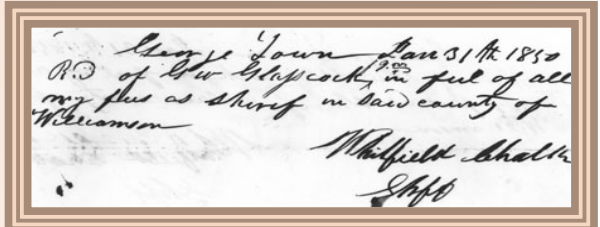 George Town Jan 31th 1850
R.D of G W Glasscock 9.00 in ful of all
my fees as sherif in said county of
Williamson
Whitfield Chalk
Shff